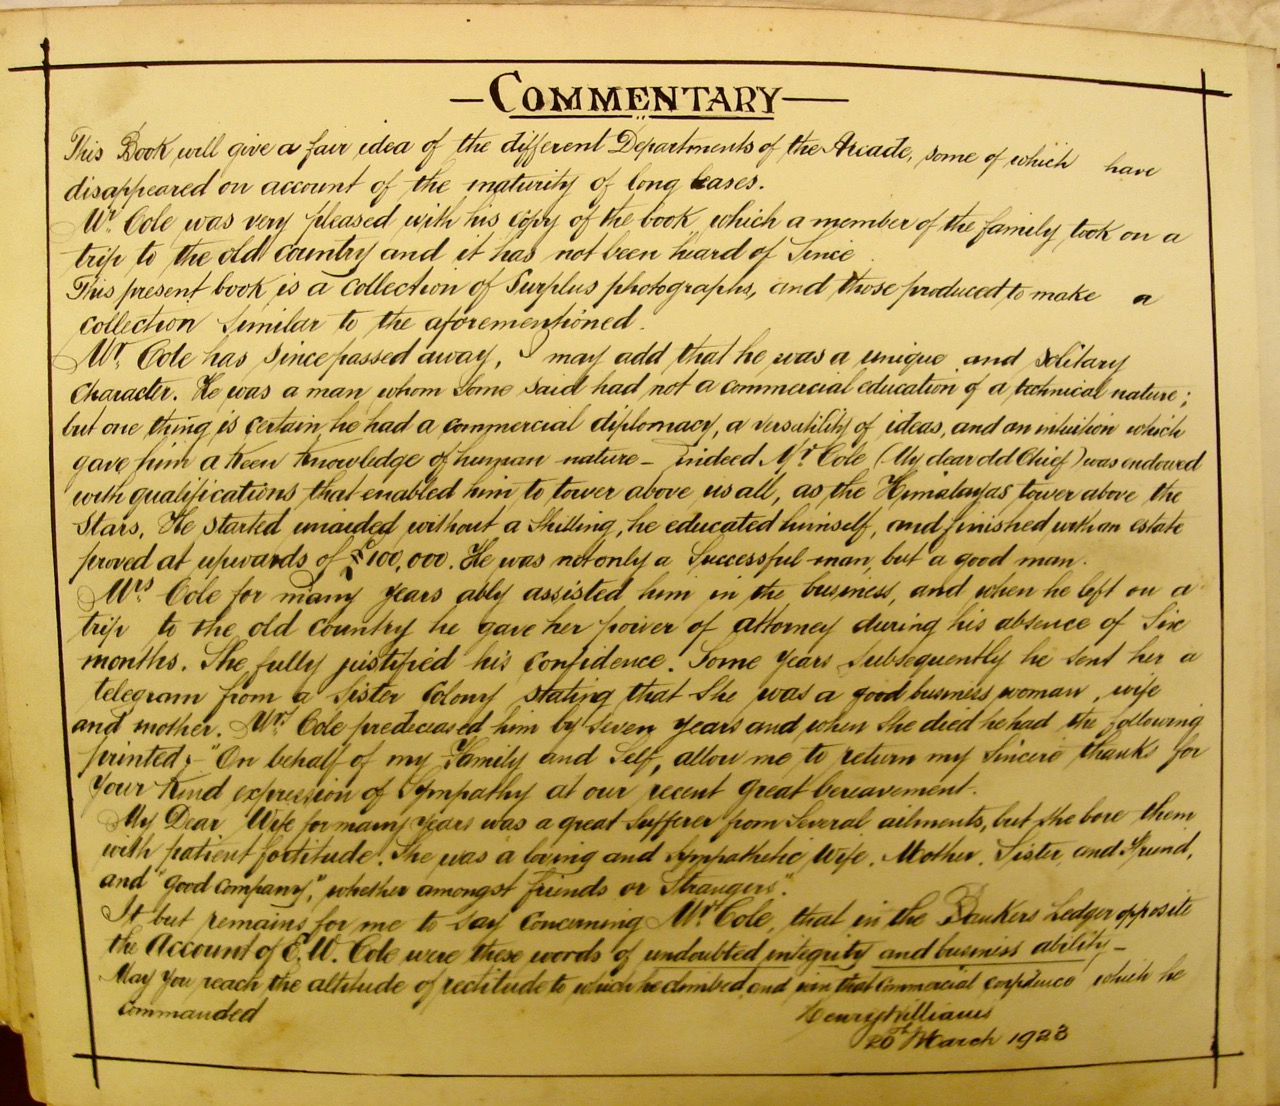 —COMMENTARY—
This Book will give a fair idea of the different Departments of the Arcade, some of which have
disappeared on account of the maturity of long leases.
Mr. Cole was very pleased with his copy of the book which a member of the family took on a
trip to the old country and it has not been heard of since.
This present book is a collection of surplus photographs, and those produced to make a
collection similar to the aforementioned.
Mr. Cole has since passed away, I may add that he was a unique and solitary
character. He was a man whom some said had not a commercial education of a technical nature;
but one thing is certain, he had a commercial diplomacy, a versatility of ideas, and an intuition which
gave him a keen knowledge of human nature — indeed Mr. Cole (My dear old Chief) was endowed
with qualifications that enabled him to tower above us all, as the Himalayas tower above the
Stars. He started unaided without a shilling, he educated himself, and finished with an estate
proved at upwards of £100,000. He was not only a successful man, but a good man.
Mrs. Cole for many years ably assisted him in the business, and when he left on a
trip to the old country he gave her power of attorney during his absence of six
months. She fully justified his confidence. Some years subsequently he sent her a
telegram from a sister colony stating that she was a good business woman, wife
and mother. Mrs. Cole predeceased him by seven years and when she died he had the following
printed;- "On behalf of my Family and Self, allow me to return my sincere thanks for
your kind expression of Sympathy at our recent great bereavement.
My Dear Wife for many years was a great sufferer from several ailments, but she bore them
with patient fortitude. She was a loving and sympathetic Wife. Mother. Sister, and Friend,
and "good company," whether amongst friends or Strangers".
It but remains for me to say concerning Mr. Cole, that in the Bankers Ledger opposite
the Account of E. W. Cole were these words of undoubted integrity and business ability—
May you reach the altitude of rectitude to which he climbed and win that commercial confidence which he
commanded
Henry Williams
26th March 1923